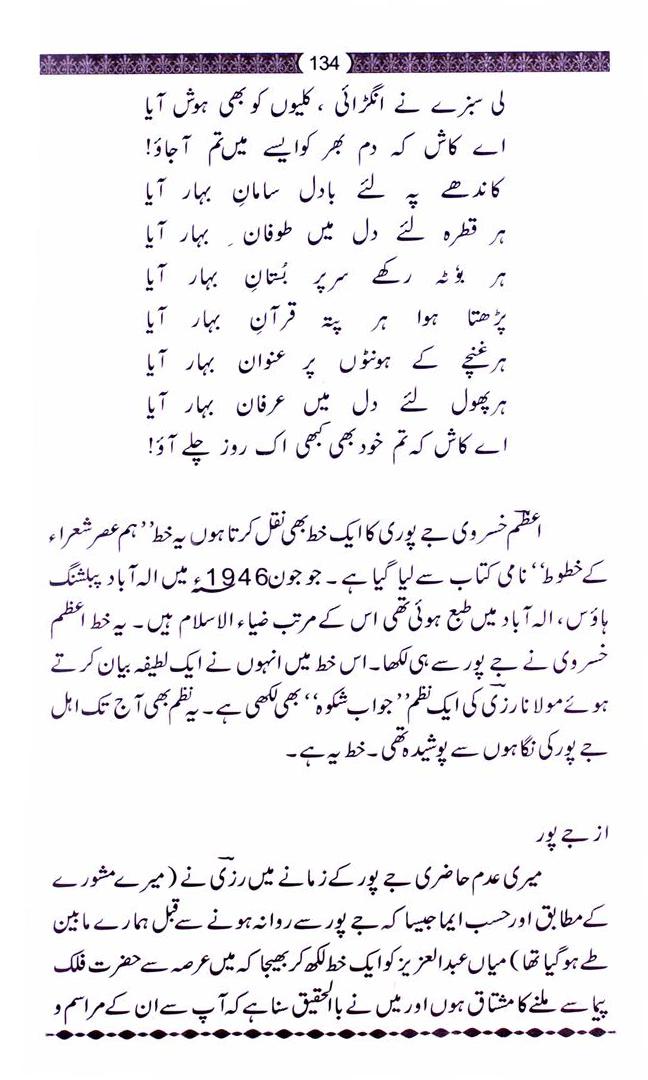 134
لی سبزے نے انگڑائی ، کلیوں کو بھی ہوش آیا
اے کاش کہ دم بھر کو ایسے میں تم آجاؤ!
کاندھے پہ لئے بادل سامانِ بہار آیا
ہر قطرہ لئے دل میں طوفانِ بہار آیا
ہر بوٹہ رکھے سر پر بُستانِ بہار آیا
پڑھتا ہوا ہر پتہ قرآنِ بہار آیا
ہر غنچے کے ہونٹوں پر عنوان بہار آیا
ہر پھول لئے دل میں عرفان بہار آیا
اے کاش کہ تم خود بھی کبھی اک روز چلے آؤ!
اعظم خسروی جے پوری کا ایک خط بھی نقل کرتا ہوں یہ خط ’’ہم عصر شعراء
کے خطوط‘‘ نامی کتاب سے لیا گیا ہے ۔ جو جون 1946ء میں الہ آباد پبلشنگ
ہاؤس، الہ آباد میں طبع ہوئی تھی اس کے مرتب ضیاء الاسلام ہیں ۔ یہ خط اعظم
خسروی نے جے پور سے ہی لکھا۔ اس خط میں انہوں نے ایک لطیفہ بیان کرتے
ہوئے مولانا رزیؔ کی ایک نظم ’’جواب شکوہ‘‘ بھی لکھی ہے۔ یہ نظم بھی آج تک اہل
جے پور کی نگاہوں سے پوشیدہ تھی ۔ خط یہ ہے ۔
از جے پور
میری عدم حاضری جے پور کے زمانے میں رزیؔ نے (میرے مشورے
کے مطابق اور حسب ایما جیسا کہ جے پور سے روانہ ہونے سے قبل ہمارے مابین
طے ہوگیا تھا) میاں عبدالعزیز کو ایک خط لکھ کر بھیجا کہ میں عرصہ سے حضرت فلک
پیما سے ملنے کا مشتاق ہوں اور میں نے باالحقیق سنا ہے کہ آپ سے ان کے مراسم و